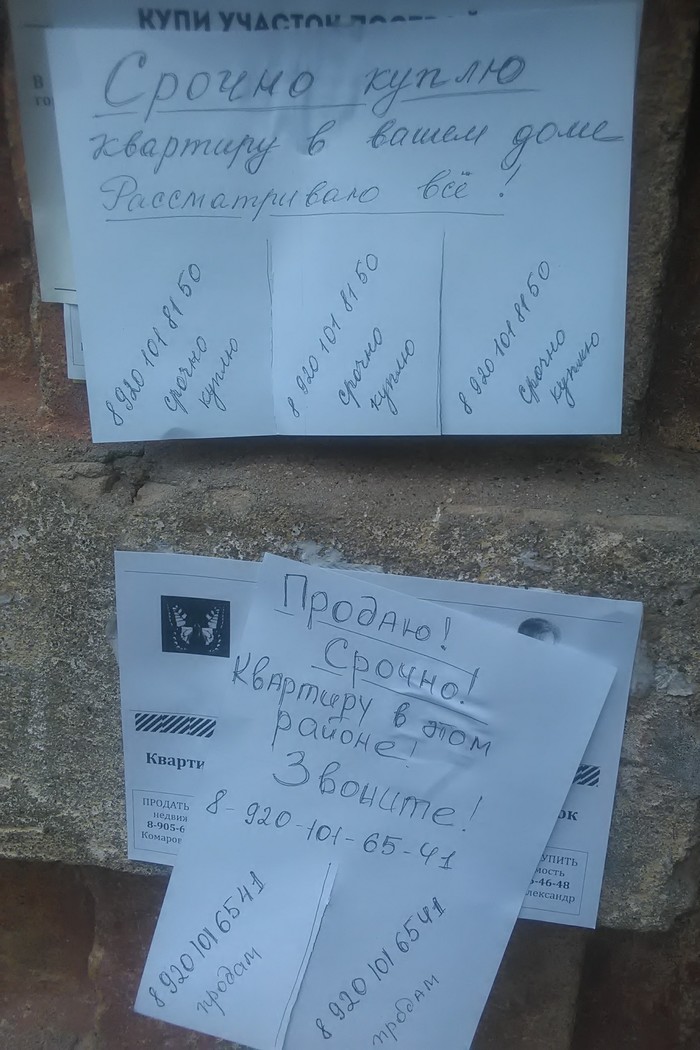 КУПИ УЧАСТОК
Срочно куплю
квартиру в вашем доме
Рассматриваю всё!
8 920 101 81 50
срочно
куплю
8 920 101 81 50
срочно
куплю
8 920 101 81 50
срочно
куплю
Продаю!
Срочно!
Квартиру в этом
районе!
Звоните!
8-920-101-65-41
8 920 101 65 41
продам
8 920 101 65 41
продам
Кварти
ПРОДАТЬ
недвиж
8-905-6
Комаров
ок
УПИТЬ
мость
-46-48
лександр